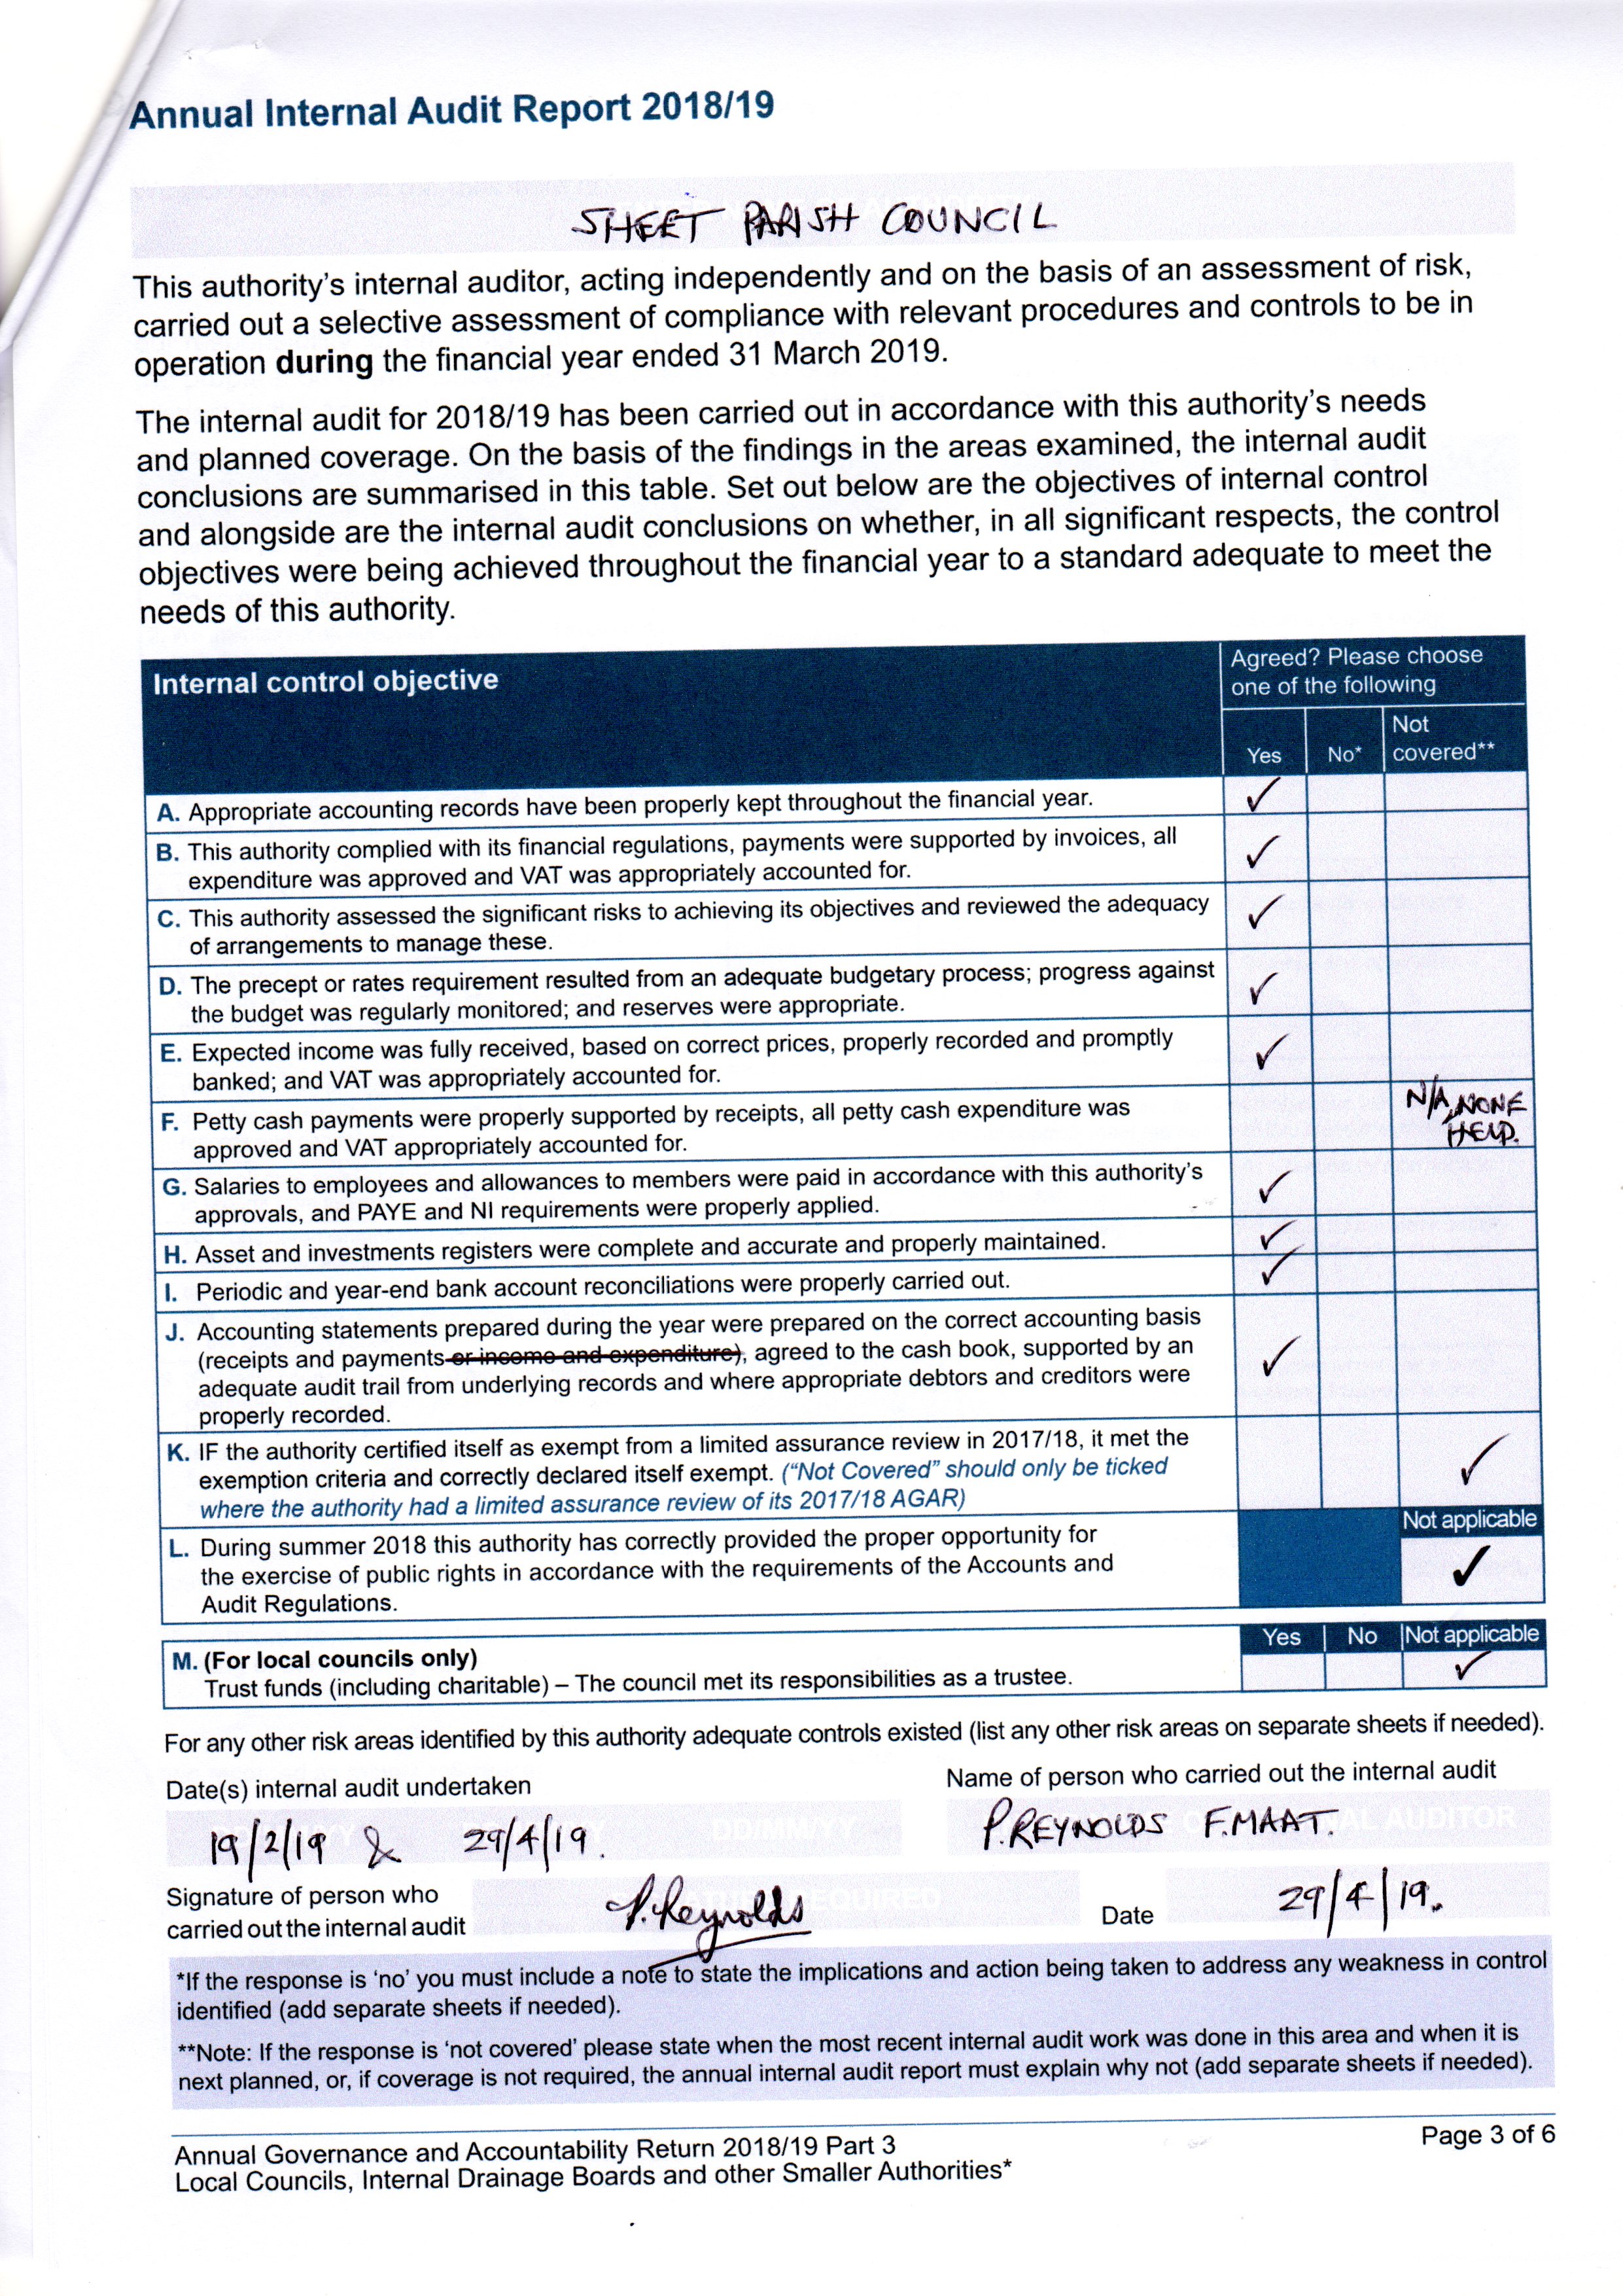 Annual Internal Audit Report 2018/19
SHEET PARISH COUNCIL
This authority's internal auditor, acting independently and on the basis of an assessment of risk,
carried out a selective assessment of compliance with relevant procedures and controls to be in
operation during the financial year ended 31 March 2019.
The internal audit for 2018/19 has been carried out in accordance with this authority's needs
and planned coverage. On the basis of the findings in the areas examined, the internal audit
conclusions are summarised in this table. Set out below are the objectives of internal control
and alongside are the internal audit conclusions on whether, in all significant respects, the control
objectives were being achieved throughout the financial year to a standard adequate to meet the
needs of this authority.
Internal control objective
Agreed? Please choose
one of the following
Yes No* Not
covered**
A. Appropriate accounting records have been properly kept throughout the financial year. ✓
B. This authority complied with its financial regulations, payments were supported by invoices, all
expenditure was approved and VAT was appropriately accounted for. ✓
C. This authority assessed the significant risks to achieving its objectives and reviewed the adequacy
of arrangements to manage these. ✓
D. The precept or rates requirement resulted from an adequate budgetary process; progress against
the budget was regularly monitored; and reserves were appropriate. ✓
E. Expected income was fully received, based on correct prices, properly recorded and promptly
banked; and VAT was appropriately accounted for. ✓
F. Petty cash payments were properly supported by receipts, all petty cash expenditure was
approved and VAT appropriately accounted for.
N/A, NONE
HELD.
G. Salaries to employees and allowances to members were paid in accordance with this authority's
approvals, and PAYE and NI requirements were properly applied. ✓
H. Asset and investments registers were complete and accurate and properly maintained. ✓
I. Periodic and year-end bank account reconciliations were properly carried out. ✓
J. Accounting statements prepared during the year were prepared on the correct accounting basis
(receipts and payments or income and expenditure), agreed to the cash book, supported by an
adequate audit trail from underlying records and where appropriate debtors and creditors were
properly recorded. ✓
K. IF the authority certified itself as exempt from a limited assurance review in 2017/18, it met the
exemption criteria and correctly declared itself exempt. ("Not Covered" should only be ticked
where the authority had a limited assurance review of its 2017/18 AGAR) ✓
Not applicable
L. During summer 2018 this authority has correctly provided the proper opportunity for
the exercise of public rights in accordance with the requirements of the Accounts and
Audit Regulations. ✓
Yes No Not applicable
M. (For local councils only)
Trust funds (including charitable) – The council met its responsibilities as a trustee. ✓
For any other risk areas identified by this authority adequate controls existed (list any other risk areas on separate sheets if needed).
Date(s) internal audit undertaken
Name of person who carried out the internal audit
19/2/19 & 29/4/19.
DD/MM/YY
P. REYNOLDS F.MAAT.
Signature of person who
carried out the internal audit
P. Reynolds
Date
29/4/19.
*If the response is 'no' you must include a note to state the implications and action being taken to address any weakness in control
identified (add separate sheets if needed).
**Note: If the response is 'not covered' please state when the most recent internal audit work was done in this area and when it is
next planned, or, if coverage is not required, the annual internal audit report must explain why not (add separate sheets if needed).
Annual Governance and Accountability Return 2018/19 Part 3
Local Councils, Internal Drainage Boards and other Smaller Authorities*
Page 3 of 6